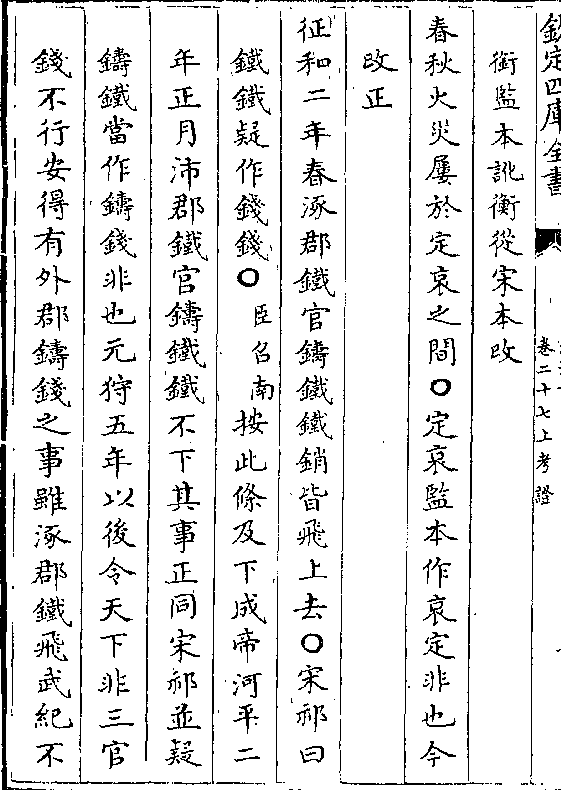 欽定四庫全書
卷二十七上考證
銜監本訛衡從宋本改
春秋火災屢於定哀之間○定哀監本作哀定非也今
改正
征和二年春涿郡鐵官鑄鐵鐵銷皆飛上去○宋祁曰
鐵鐵疑作錢錢○臣召南按此條及下成帝河平二
年正月沛郡鐵官鑄鐵鐵不下其事正同宋祁並疑
鑄鐵當作鑄錢非也元狩五年以後令天下非三官
錢不行安得有外郡鑄錢之事雖涿郡鐵飛武紀不